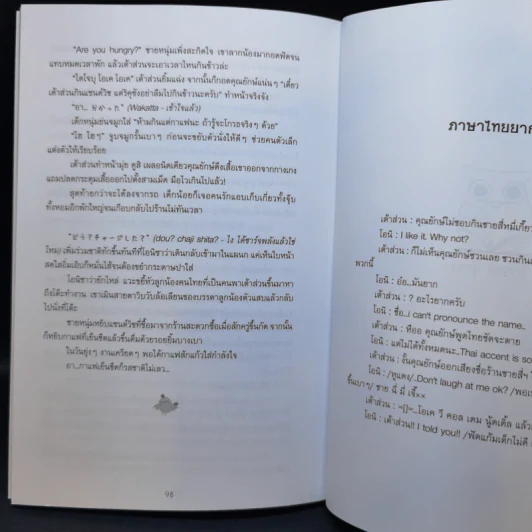 "Are you hungry?" ชายหนุ่มเพิ่งสะกิดใจ เขาลากน้องมากอดฟัดจน
แทบหมดเวลาพัก แล้วเต้าส่วนจะเอาเวลาไหนกินข้าวล่ะ
"ไดโจบุ โอเค โอเค" เต้าส่วนยิ้มแฉ่ง จากนั้นก็กอดคุณยักษ์แน่นๆ "เดี๋ยว
เต้าส่วนกินแซนด์วิช แต่ริคุซังอย่าลืมไปกินข้าวนะครับ" ทำหน้าจริงจัง
"อา... わかった" (Wakatta - เข้าใจแล้ว)
เด็กหนุ่มย่นจมูกใส่ "ห้ามกินแต่กาแฟนะ ถ้ารู้จะโกรธจริงๆ ด้วย"
"โฮ โฮๆ" จูบจมูกรั้นเบาๆ ก่อนจะขยับตัวนั่งให้ดีๆ ช่วยคนตัวเล็ก
แต่งตัวให้เรียบร้อย
เต้าส่วนทำหน้ามุ่ย ดูสิ เผลอนิดเดียวคุณยักษ์ดึงเสื้อเขาออกจากกางเกง
แถมปลดกระดุมเสื้อออกไปตั้งสามเม็ด มือไวเกินไปแล้ว!
สุดท้ายกว่าจะได้ลงจากรถ เด็กน้อยก็เจอคนรักแอบเก็บเกี่ยวทั้งจุ๊บ
ทั้งหอมอีกพักใหญ่จนเกือบกลับไปร้านไม่ทันเวลา
"どう?チャージした?" (dou? chaji shita? - ไง ได้ชาร์จพลังแล้วใช่
ไหม) เพิ่มร่วมชาติทักขึ้นทันทีที่โอนิซาว่าเดินกลับเข้ามาในแผนก แค่เห็นใบหน้า
สดใสอิ่มเอิบก็หมั่นไส้จนต้องขยำกระดาษปาใส่
โอนิซาว่ายักไหล่ แวะขยี้หัวลูกน้องคนไทยที่เป็นคนพาเต้าส่วนขึ้นมาหา
ถึงโต๊ะทำงาน เขาเมินสายตาวิบวับล้อเลียนของบรรดาลูกน้องตัวแสบแล้วกลับ
ไปนั่งที่โต๊ะ
ชายหนุ่มหยิบแซนด์วิชที่ซื้อมาจากร้านสะดวกซื้อเมื่อสักครู่ขึ้นกัด จากนั้น
ก็หยิบกาแฟที่เย็นชืดแล้วขึ้นดื่มด้วยรอยยิ้มบางเบา
ในวันยุ่งๆ งานเครียดๆ พอได้กาแฟสักแก้วใส่กำลังใจ
อา...กาแฟเย็นชืดก็รสชาติไม่เลว...
98
ภาษาไทยยาก
เต้าส่วน : คุณยักษ์ไม่ชอบกินชายสี่หมี่เกี้ยว
โอนิ : I like it. Why not?
เต้าส่วน : ก็ไม่เห็นคุณยักษ์ชวนเลย ชวนกิน
พวกนี้
โอนิ : อ๋อ...มันยาก
เต้าส่วน : ? อะไรยากครับ
โอนิ : ชื่อ...i can't pronounce the name..
เต้าส่วน : หืออ คุณยักษ์พูดไทยชัดจะตาย
โอนิ : แต่ไม่ได้ทั้งหมดนะ..Thai accent is so
เต้าส่วน : งั้นคุณยักษ์ออกเสียงชื่อร้านชายสี่ๆ
โอนิ : /หูแดง/..Don't laugh at me ok? /พอเ
ขึ้นเบาๆ/ ชาย ฉี่ มี่ เจี๊ยx
เต้าส่วน : =[]=...โอเค วี คอล เดม นู้ดเดิ้ล แล้ว
โอนิ : เต้าส่วน!! I told you!! /ฟัดแก้มเด็กไม่ดี